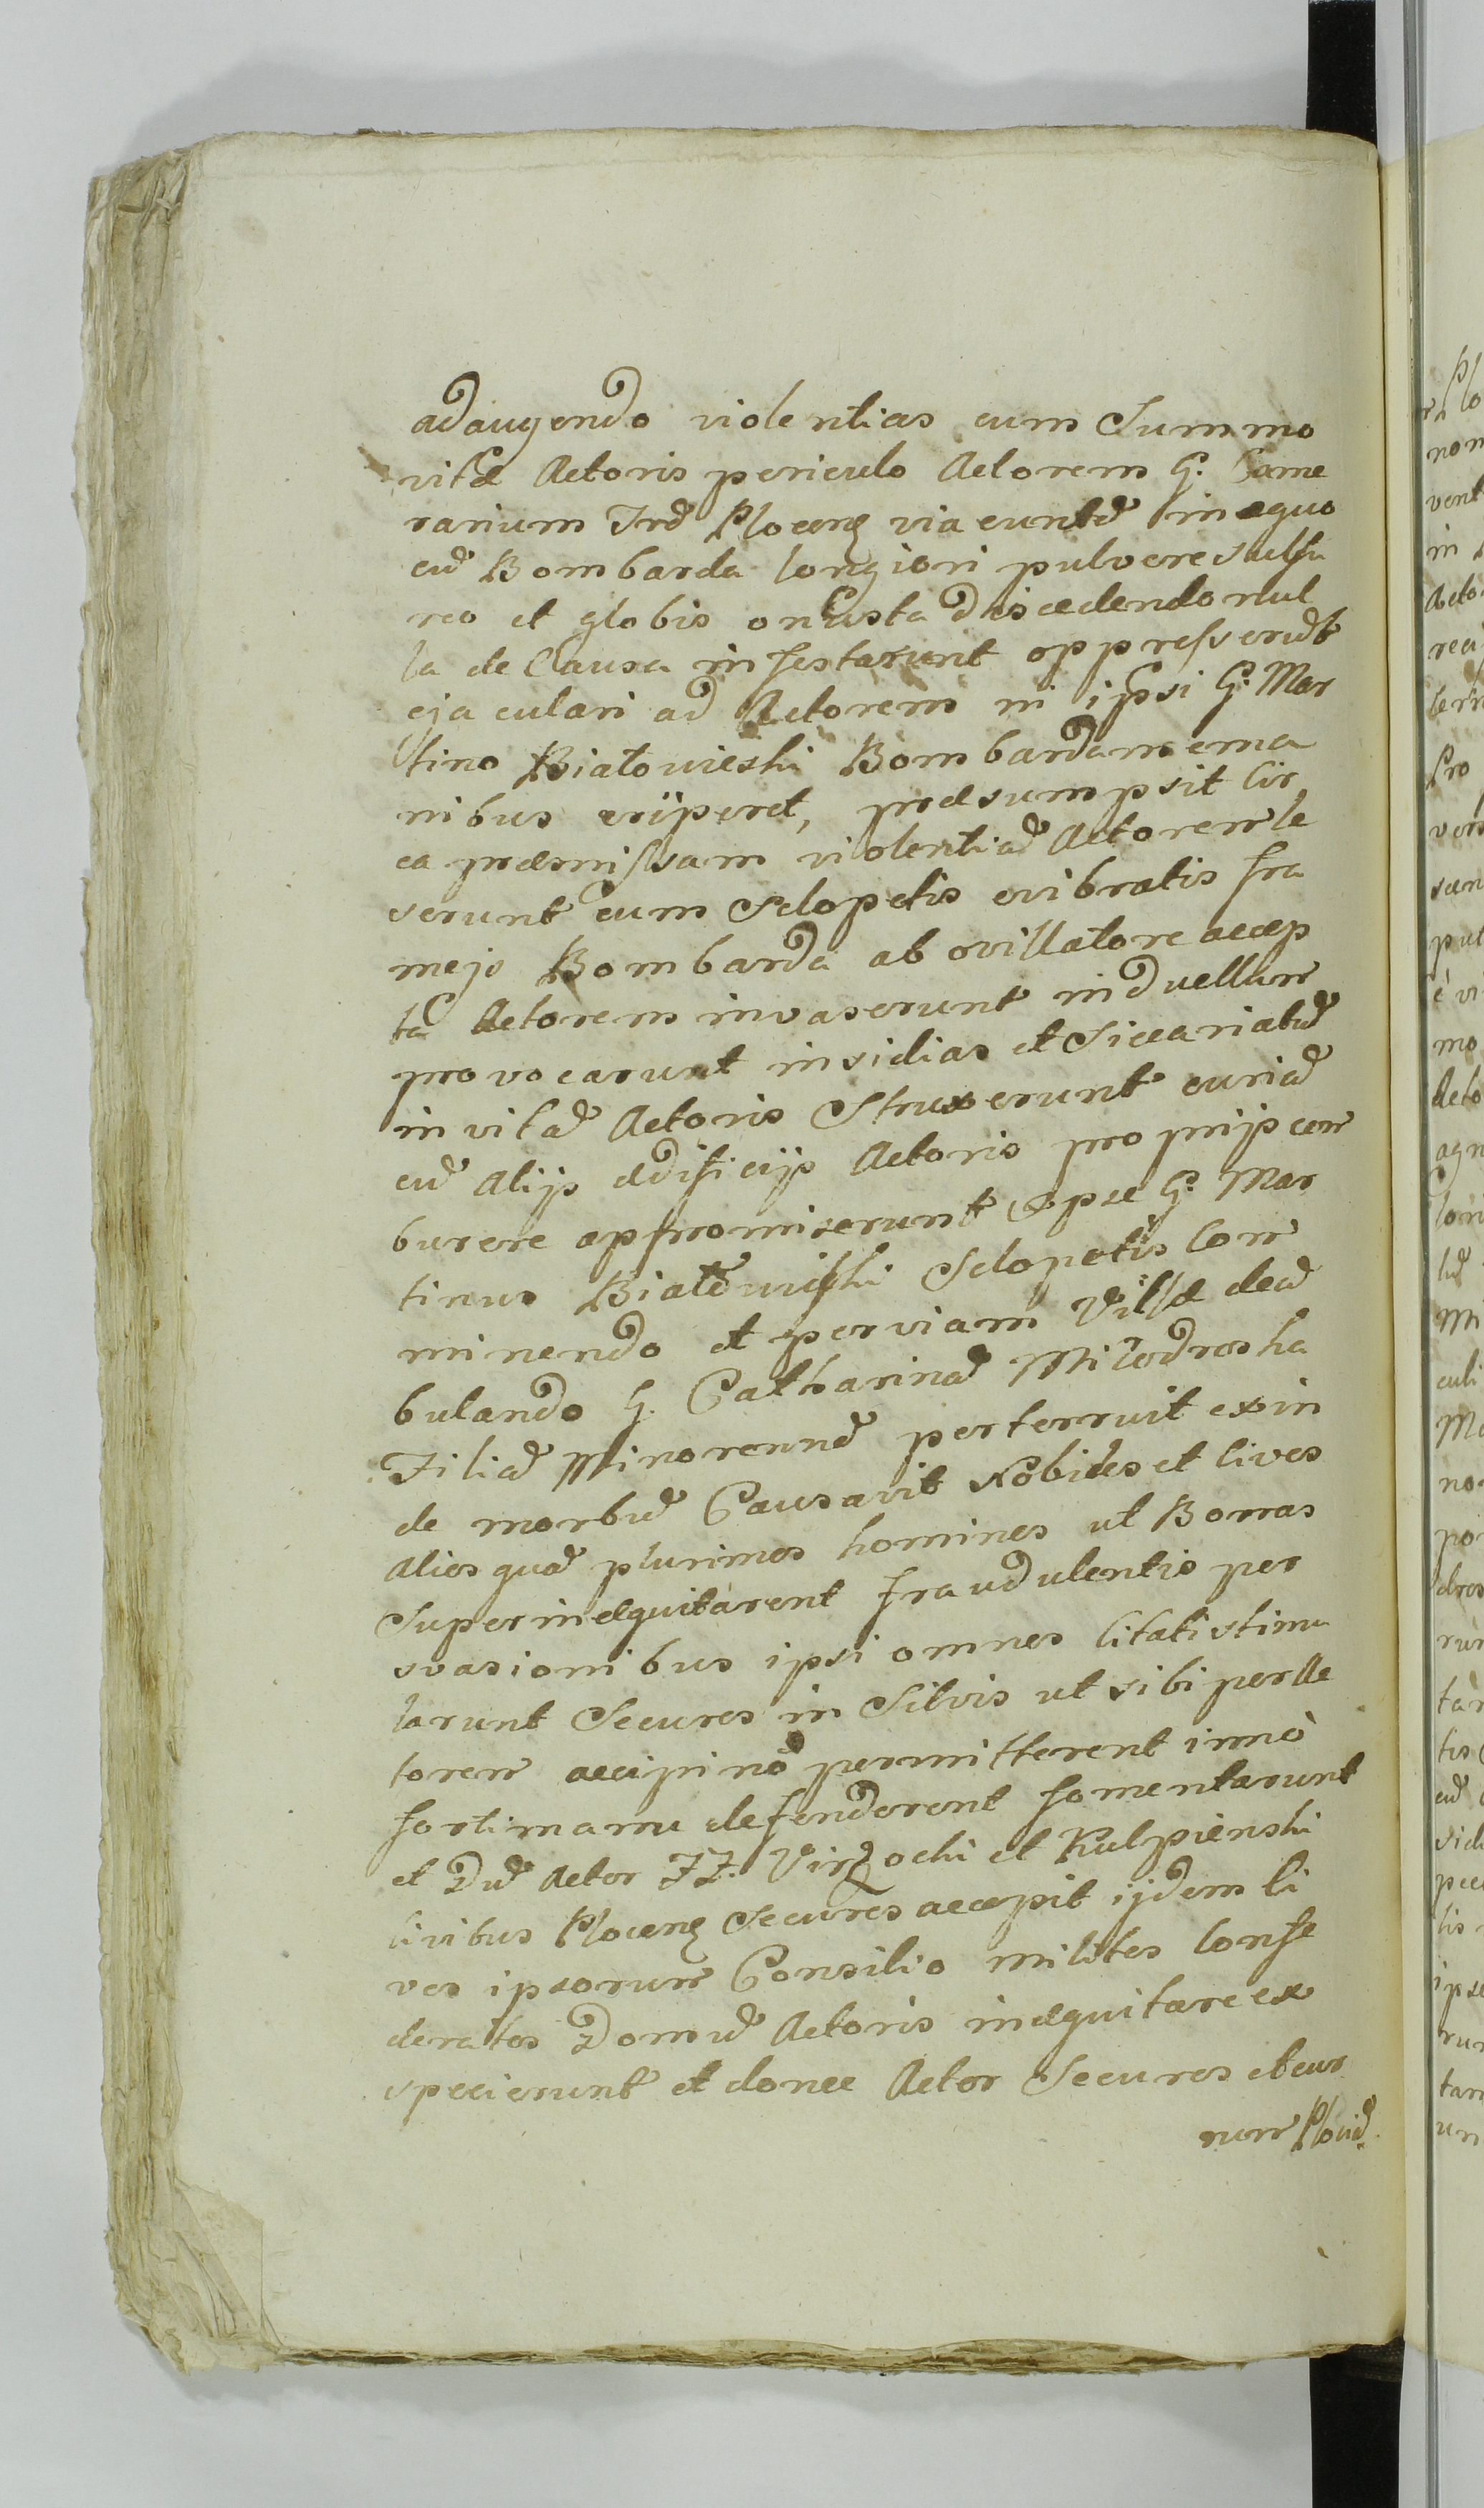 adaugendo violentias cum Summo
vitæ Actoris periculo Actorem G. Came
rarium Trẽ Plocens via euntẽ in equo
cũ Bombarda longiori pulvere sulfu
reo et globis onusta discedendo nul
la de Causa infestarunt oppresserũt
ejaculari ad Actorem ni ipsi G. Mar
tino Białowieski Bombardam e ma
nibus eriperet, præsumpsit Cir
ca præmissam violentiã Actorem le
serunt eum Sclopetis evibratis fra
mejs Bombarda ab ovillatore accep
ta Actorem invaserunt in duellum
provocarunt insidias et Siccariatũ
in vitã Actoris Struxerunt curiã
cũ alijs ædificijs Actoris proprijs com
burere appromiserunt Ipse G. Mar
tinus Białowiski Sclopetis Com
minendo et per viam Villæ deã
bulando G. Catharinã Milodroska
Filiã Minorennẽ perterruit exin
de morbũ Causavit Nobiles et Cives
alios quã plurimos homines ut Borras
Superinequitarent fraudulentis per
svasionibus ipsi omnes Citati stimu
larunt Secures in Silvis ut sibi per Ac
torem accipi nõ permitterent imò
forti manu defenderent fomentarunt
et Dũ Actor FF. Virzocki et Kulpienski
Civibus Plocens Secures accepit ijdem Ci
ves ipsorum Consilio milites Confe
deratos Domũ Actoris inequitare ex
specierunt et donec Actor Secures et cur
rum Plociẽ